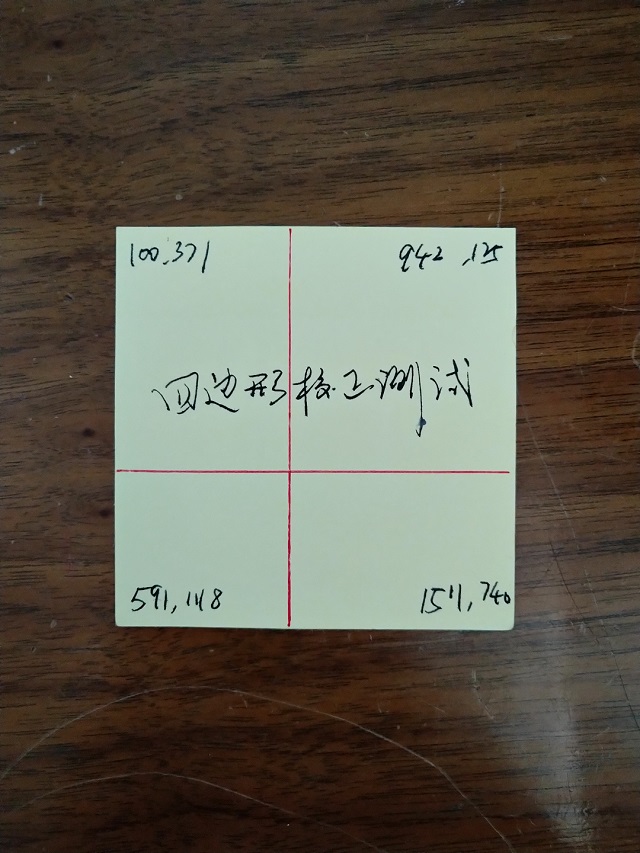 100,371 942,125
四边形校正测试
591,1118 1511,740